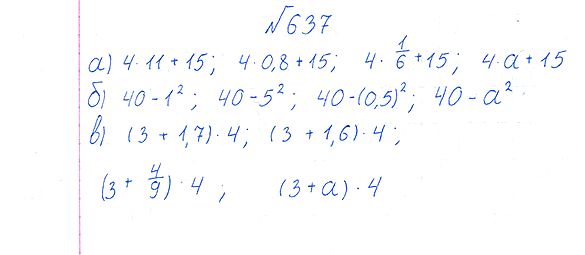 №637
а) 4·11+15; 4·0,8+15; 4·1/6+15; 4·а+15
б) 40-1²; 40-5²; 40-(0,5)²; 40-а²
в) (3+1,7)·4; (3+1,6)·4;
(3+4/9)·4; (3+а)·4